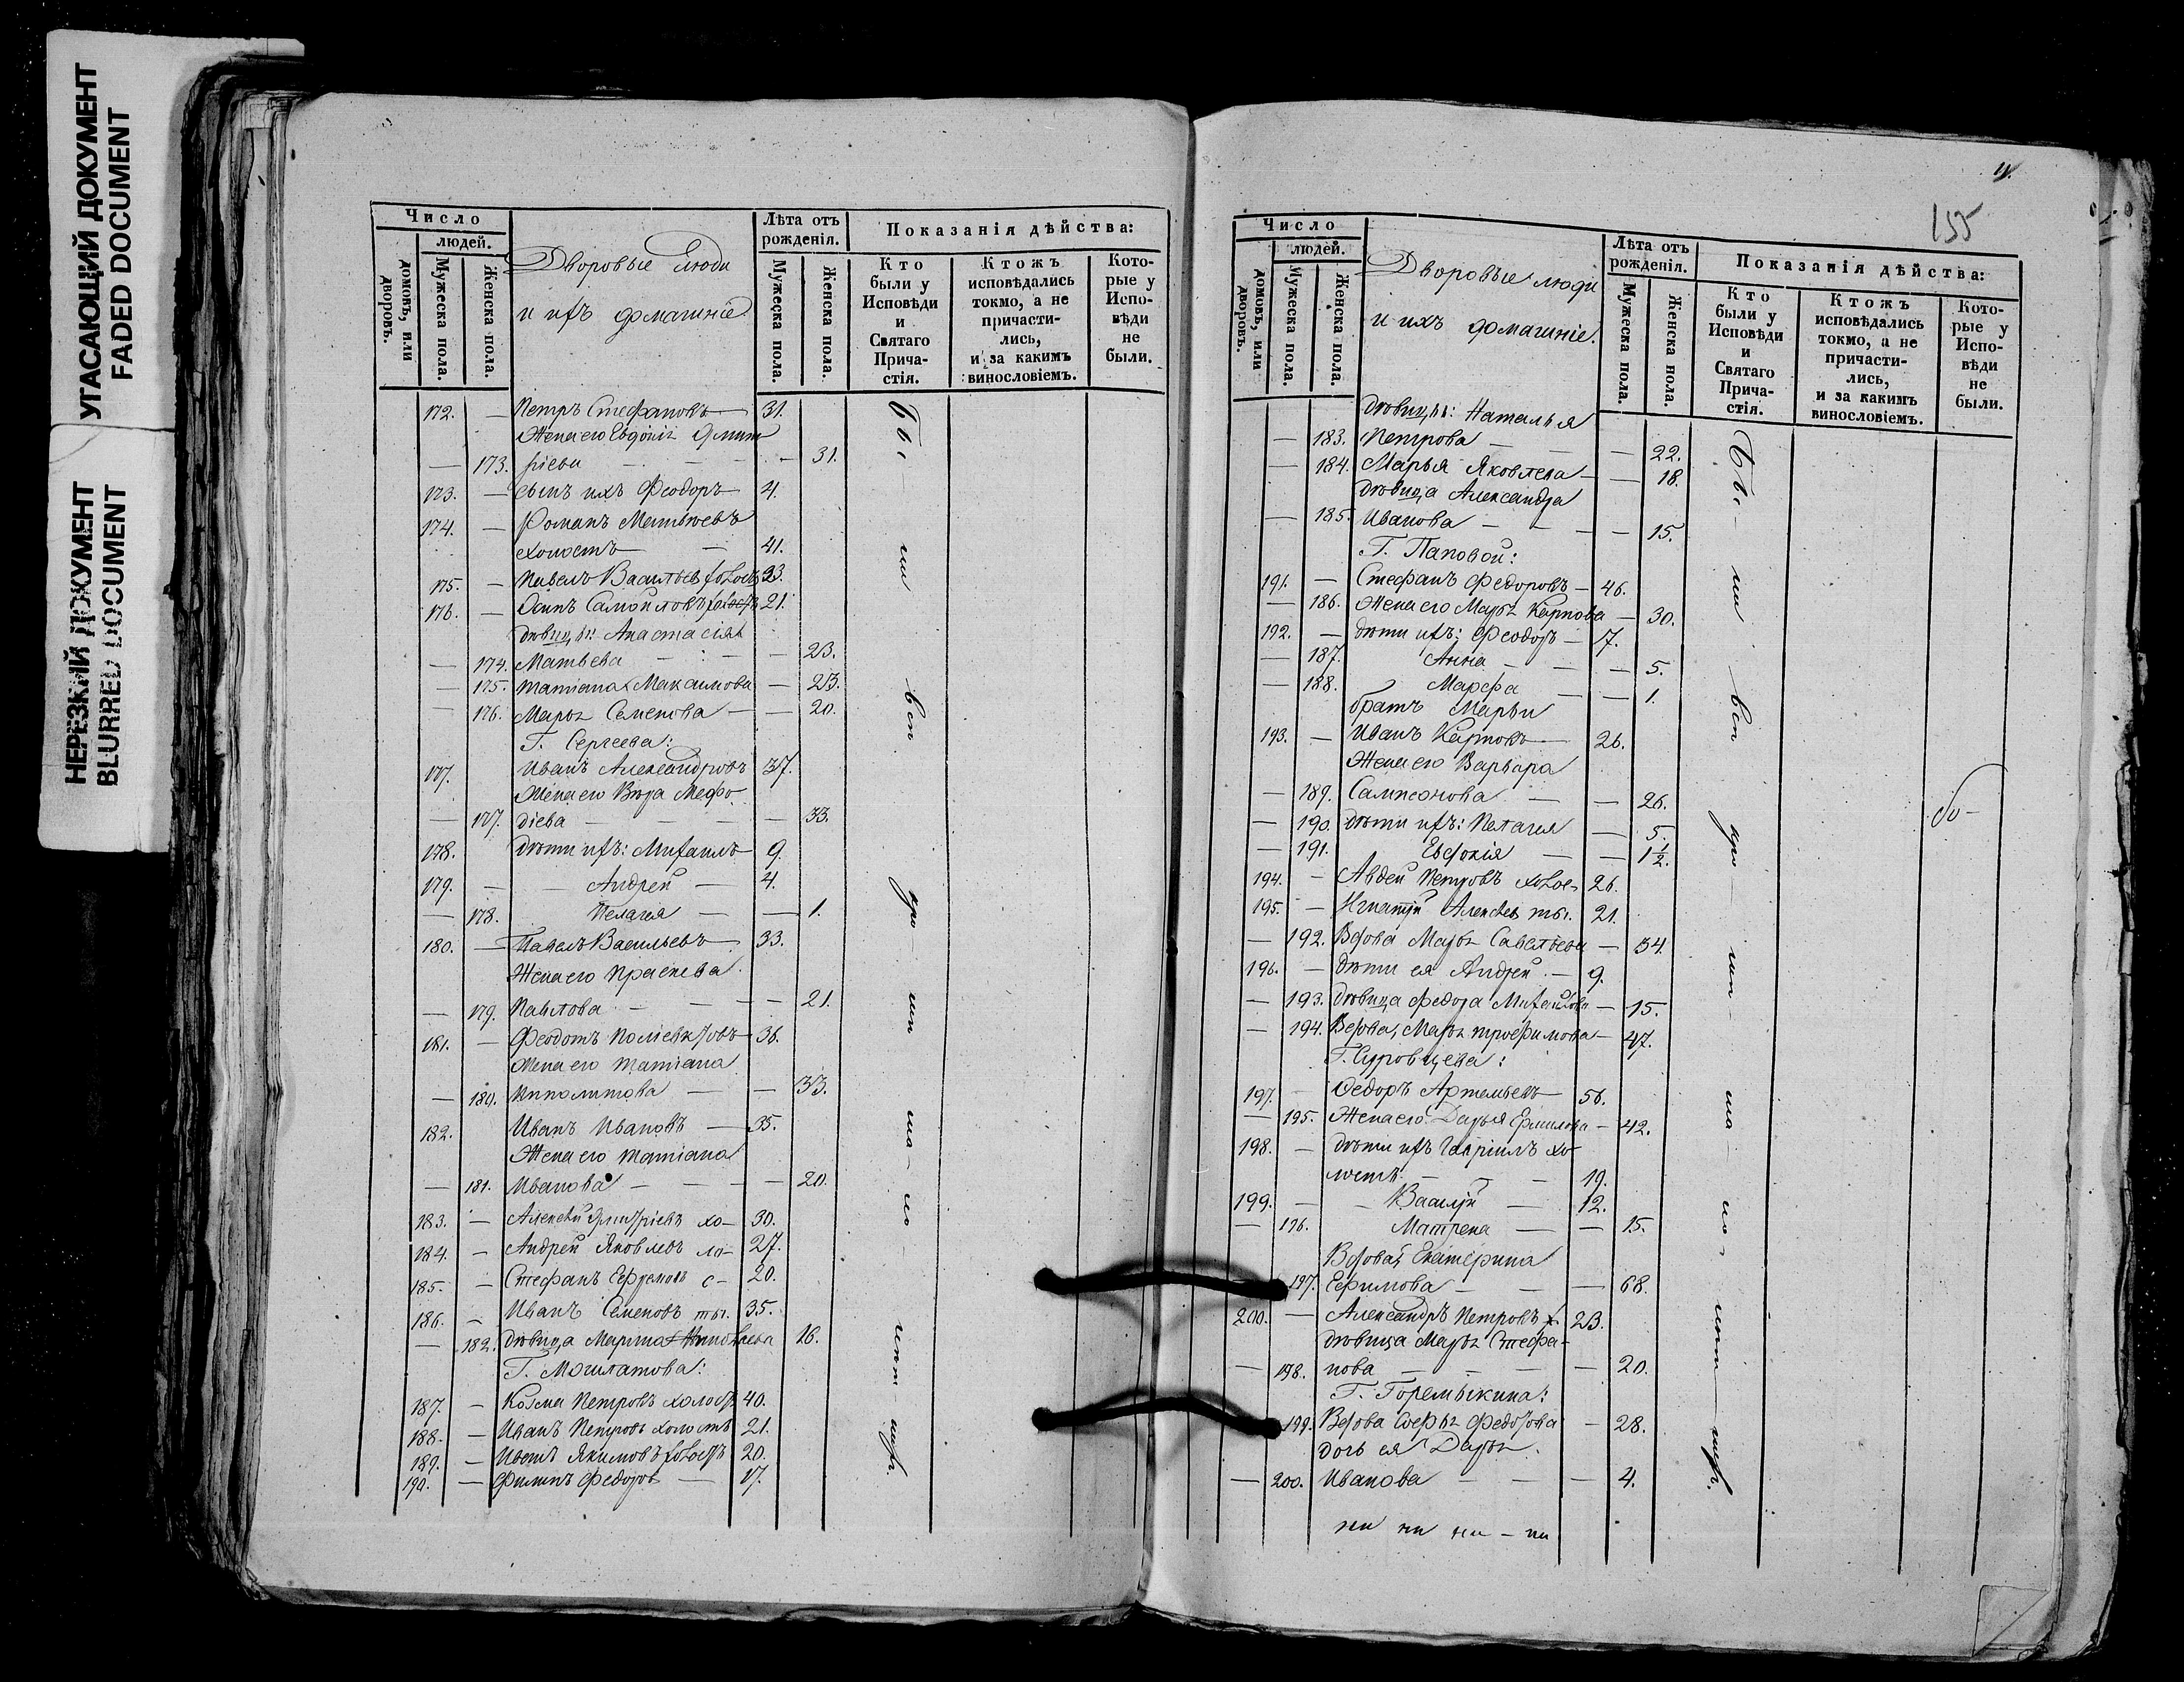 УГАСАЮЩИЙ ДОКУМЕНТ
FADED DOCUMENT
НЕРЕЗКИЙ ДОКУМЕНТ
BLURRED DOCUMENT
Число
людей.
домовъ, или дворовъ.
Мужеска пола.
Женска пола.
Дворовые люди
и ихъ домашніе
Лѣта отъ рожденія.
Мужеска пола.
Женска пола.
Показанія дѣйства:
Кто были у Исповѣди и Святаго Причастія.
Ктожъ исповѣдались токмо, а не причастились, и за какимъ винословіемъ.
Которые у Исповѣди не были.
172. — Петръ Стефановъ — 31.
Жена его Евдокія Дмит
— 173. ріева — — — 31.
173. — сынъ ихъ Феодоръ — 4.
174. — Романъ Матвѣевъ
холостъ — — 41.
175. — Павелъ Васильев холостъ 23.
176. — Осипъ Самойловъ холостъ 21.
дѣвицы: Анастасія
— 174. Матвева — — — 23.
— 175. Татіана Максимова — 23.
— 176. Марья Семенова — — 20.
Г. Сергеева:
177. Иванъ Александровъ 37.
Жена его Вѣра Мефо
— 177. діева — — — — 33.
178. дѣти ихъ: Михаилъ — 9.
179. — — Андрей — 4.
— 178. Пелагея — — 1.
180. — Павелъ Васильевъ — 33.
Жена его Праскева
— 179. Павлова — — — 21.
181. — Феодотъ — 36.
Жена его Татіана
— 180. Ипполитова — — 33.
182. Иванъ Ивановъ — 35.
Жена его Татіана
— 181. Иванова — — — — 20.
183. — Алексей Дмитріевъ хо— 30.
184. — Андрей Яковлевъ ло— 27.
185. — Стефанъ Ефремовъ с— 20.
186. — Иванъ Семеновъ ты. 35.
— 182. Дѣвица Марина Николаева 16.
Г. Мошлатова:
187. — Козма Петровъ холостъ 40.
188. — Иванъ Петровъ холостъ 21.
189. — Иванъ Якимовъ холостъ 20.
190. — Филипъ Федоров — 17.
155
Число
людей.
домовъ, или дворовъ.
Мужеска пола.
Женска пола.
Дворовые люди
и ихъ домашніе.
Лѣта отъ рожденія.
Мужеска пола.
Женска пола.
Показанія дѣйства:
Кто были у Исповѣди и Святаго Причастія.
Ктожъ исповѣдались токмо, а не причастились, и за какимъ винословіемъ.
Которые у Исповѣди не были.
дѣвицы: Наталья
— 183. Петрова — — 22.
— 184. Марья Яковлева — — 18.
дѣвица Александра
— 185. Иванова — — — 15.
Г. Паповой:
191. — Стефанъ Федоровъ — 46.
— 186. Жена его Марья Карпова — 30.
192. — дѣти ихъ: Феодоръ — 7.
— 187. Анна — — — 5.
— 188. Марфа — — 1.
братъ Марьи
193. — Иванъ Карповъ — 26.
Жена его Варвара
— 189. Сампсонова — — 26.
— 190. дѣти ихъ: Пелагея — 5.
— 191. Евдокія — — 1½.
194. — Авдей Петровъ холос- 26.
195. — Игнатій Алексѣев ты. 21.
— 192. Вдова Марья Савельева — 34.
196. — дѣти ея Андрей — 9.
— 193. Дѣвица Федора Михайлова — 15.
— 194. Вдова, Марья Трофимова — 47.
Г. Суровцева:
197. — Федоръ Артемьевъ — 56.
— 195. Жена его Дарья Ермилова — 42.
198. — дѣти ихъ Гавріилъ хо-
лостъ — — — 19.
199. — — Василій — 12.
— 196. Матрена — — 15.
Вдова, Екатерина
197. Ефимова — — — 68.
200. — Александръ Петровъ х 23.
дѣвица Марья Стефа-
— 198. нова — — — — 20.
Г. Горемыкина:
199. Вдова Софья Федорова — 28.
дочь ея Дарья
— 200. Иванова — — — 4.